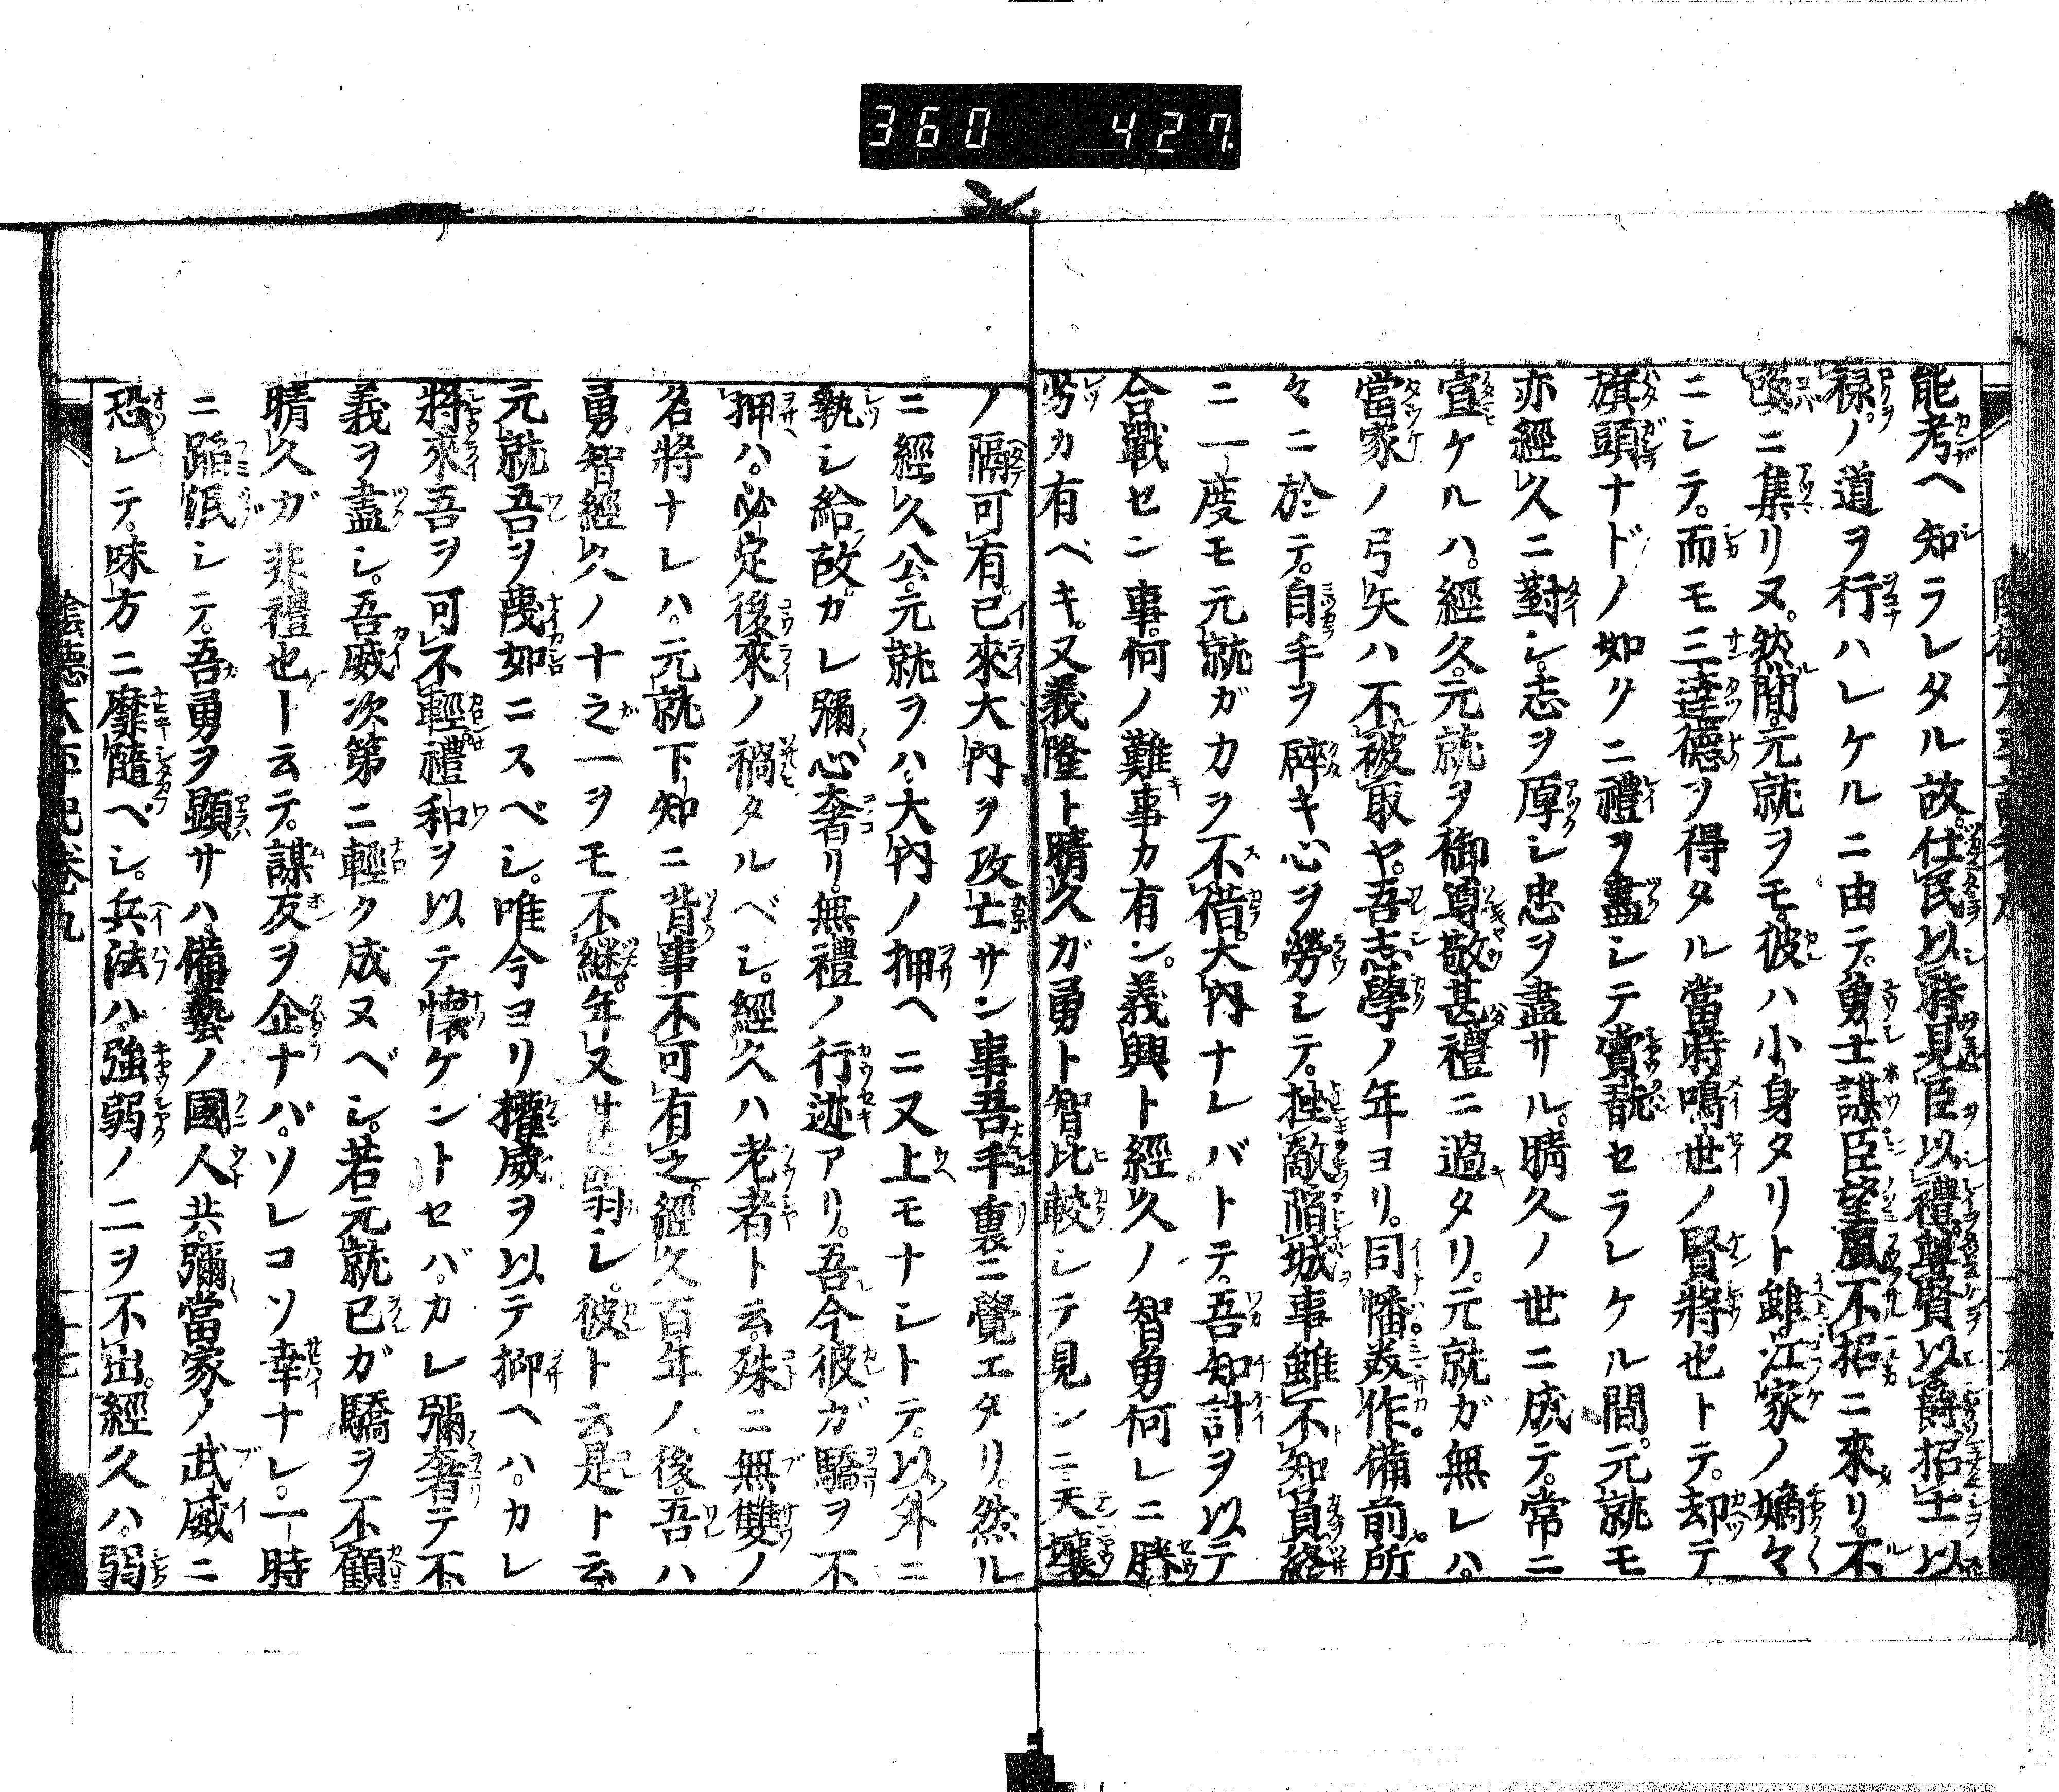 360 427
能考ヘ知ラレタル故。仕民以時見臣以禮尊賢以爵招士以
祿ノ道ヲ行ハレケルニ由テ。勇士謀臣望風不招ニ來リ。不
期ニ集リヌ。然間。元就ヲモ。彼ハ小身タリト雖。江家ノ嫡々
ニシテ。而モ三達德ヲ得タル當時鳴世ノ賢將也トテ。却テ
旗頭ナドノ如クニ禮ヲ盡シテ賞翫セラレケル間。元就モ
亦經久ニ對シ。志ヲ厚シ忠ヲ盡サル。晴久ノ世ニ成テ。常ニ
宣ケルハ。經久。元就ヲ御尊敬甚禮ニ過タリ。元就ガ無レハ。
當家ノ弓矢ハ不被取ヤ。吾志學ノ年ヨリ。同幡。美作。備前。所
々ニ於テ。自手ヲ碎キ心ヲ勞シテ。挫敵陷城事雖不知員。終
ニ一度モ元就ガカヲ不借。大內ナレバトテ。吾知計ヲ以テ
合戰セン事。何ノ難事カ有ン。義興ト經久ノ智勇何レニ勝
劣カ有ベキ。又義隆ト晴久ガ勇ト智。比較シテ見ンニ。天壤
ノ隔可有。已來大內ヲ攻亡サン事。吾手裏ニ覺エタリ。然ル
ニ經久公。元就ヲハ大內ノ押ヘニ又上モナシトテ。以外ニ
執シ給故。カレ彌心奢リ。無禮ノ行迹アリ。吾今彼ガ驕ヲ不
押ハ。必定後來ノ禍タルベシ。經久ハ老者ト云。殊ニ無雙ノ
名將ナレハ。元就下知ニ背事不可有之。經久百年ノ後。吾ハ
勇智經久ノ十之一ヲモ不繼。年又生弱シ。彼ト云是ト云。
元就吾ヲ蔑如ニスベシ。唯今ヨリ權威ヲ以テ抑ヘハ。カレ
將來吾ヲ可不輕。禮和ヲ以テ懷ケントセバ。カレ彌奢テ不
義ヲ盡シ。吾威次第ニ輕ク成ヌベシ。若元就已ガ驕ヲ不顧
晴久ガ非禮也ト云テ。謀反ヲ企ナバ。ソレコソ幸ナレ。一時
ニ蹈泯シテ。吾勇ヲ顯サハ。備藝ノ國人共。彌當家ノ武威ニ
恐レテ。味方ニ靡隨ベシ。兵法ハ。強弱ノ二ヲ不出。經久ハ。弱
陰德太平記卷九